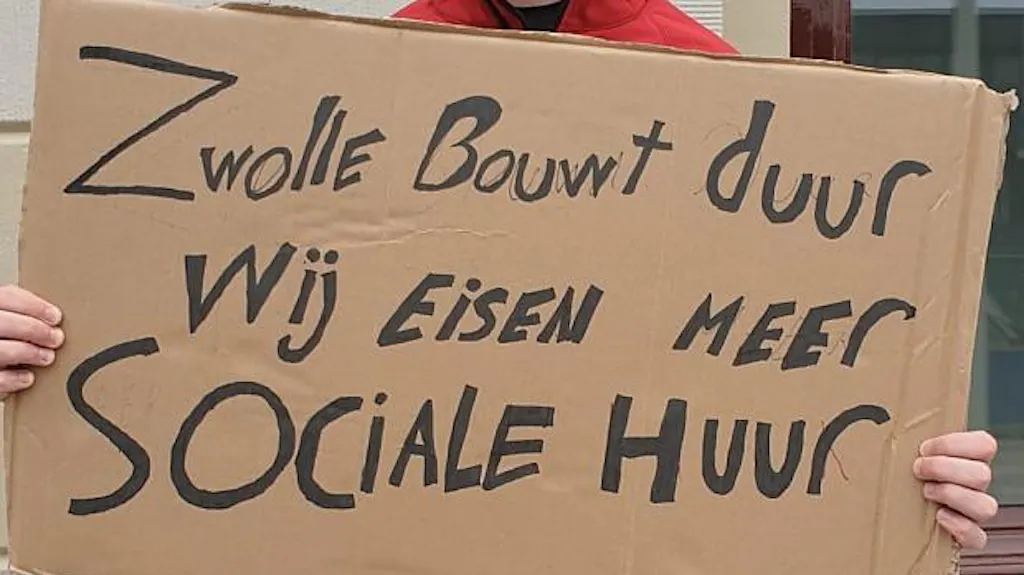 Zwolle Bouwt duur
Wij EiSEN MEEr
SOCiALE HUUr